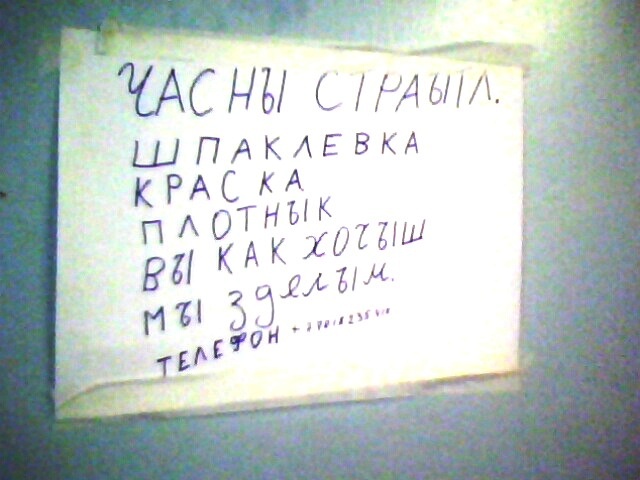 ЧАСНЫ СТРАЫТЛ.
ШПАКЛЕВКА
КРАСКА
ПЛОТНЫК
ВЫ КАК ХОЧЫШ
МЫ ЗДЕЛЫМ.
ТЕЛЕФОН